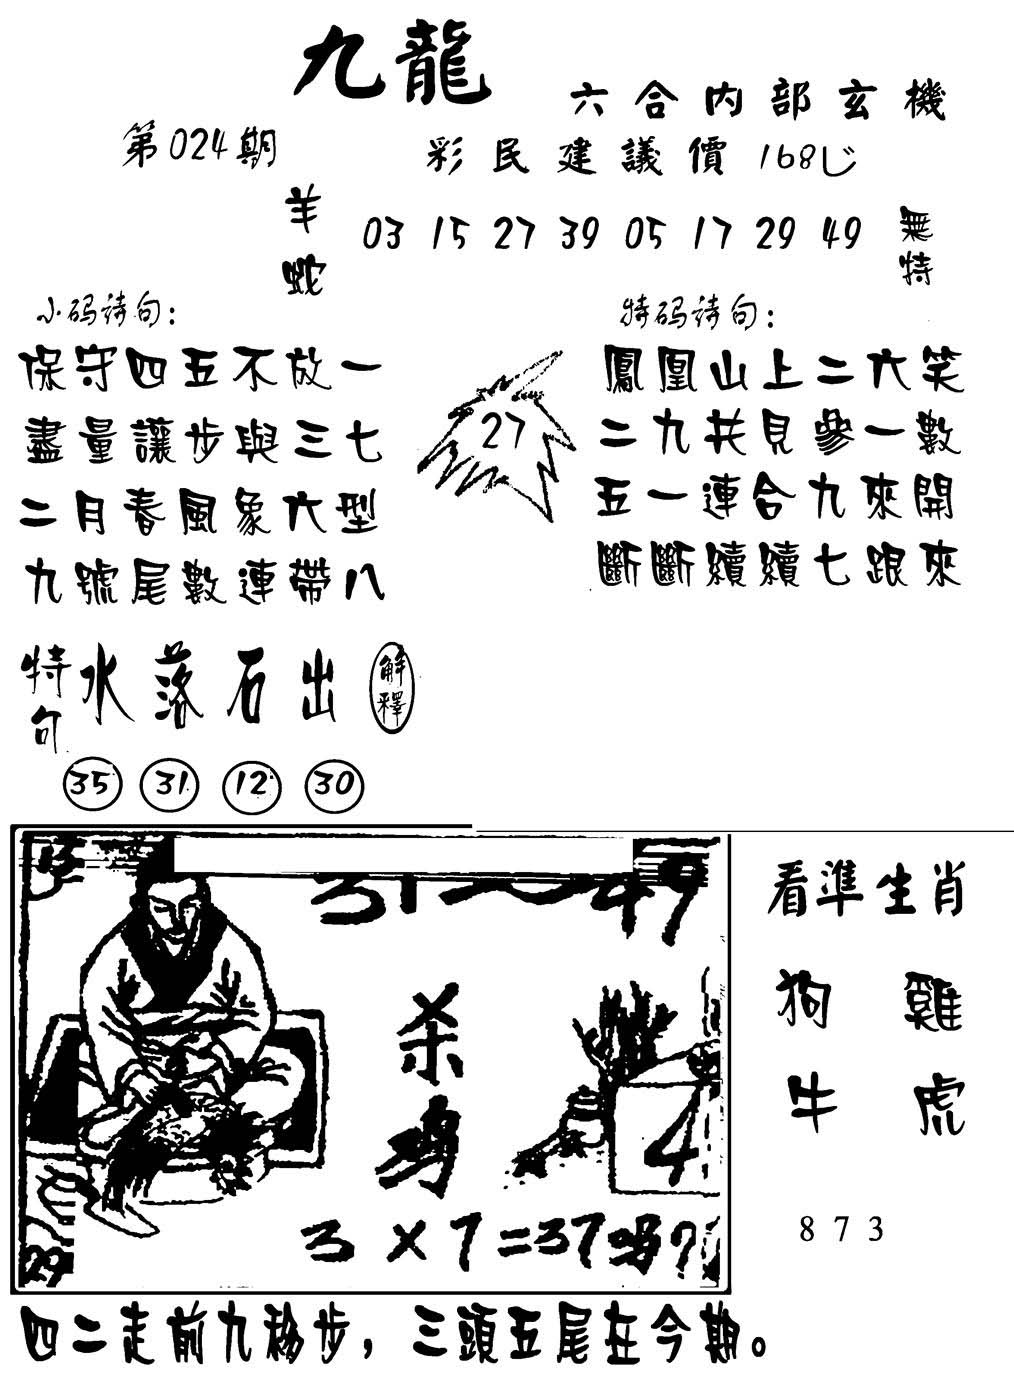 九龍
六合内部玄機
第024期
彩民建議價 168
羊 03 15 27 39 05 17 29 49 無
蛇 特
小码诗句：
保守四五不放一
盡量讓步與三七
二月春風象六型
九號尾數連帶八
27
特码诗句：
鳳凰山上二六笑
二九共見參一數
五一連合九來開
斷斷續續七跟來
特句 水落石出 解釋
35 31 12 30
49
杀鸡
4
3×7=37吗?
29
看準生肖
狗 雞
牛 虎
873
四二走前九移步，三頭五尾在今期。